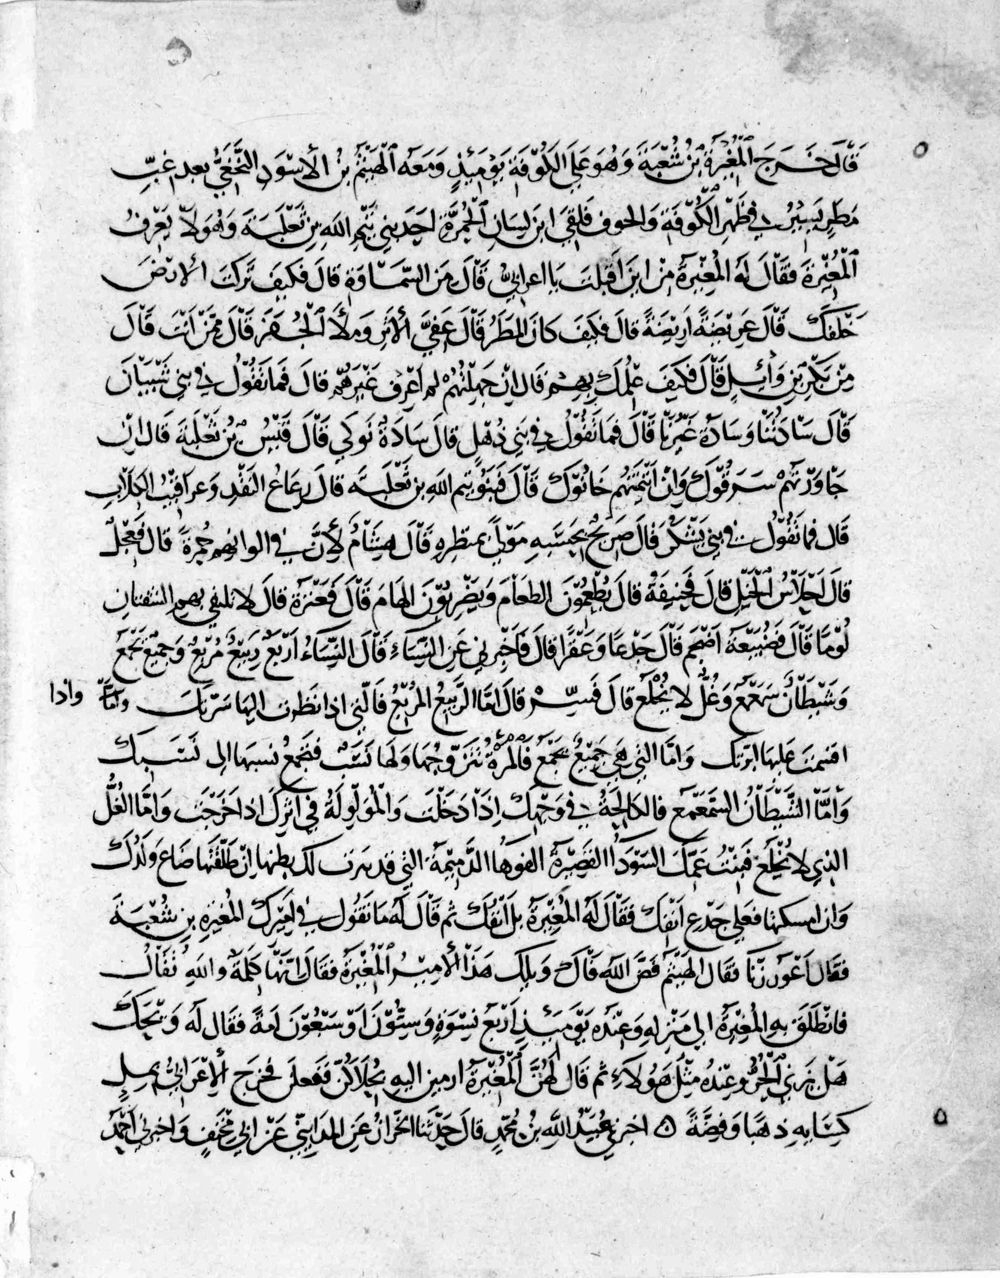 قَالَ خَرَجَ الْمُغِيْرَةُ بْنُ شُعْبَةَ وَهُوَ عَلَى الْكُوْفَةِ يَوْمَئِذٍ وَمَعَهُ الْهَيْثَمُ بْنُ الأَسْوَدِ النَّخَعِيُّ بعد غِبِّ
مَطَرٍ يَسِيْرُ فِي ظَهْرِ الْكُوْفَةِ وَالحوف فَلَقِيَ ابن لِسَانِ الْحُمَّرَةِ احَدَ بَنِي تَيْمِ اللهِ بْنِ ثَعْلَبَةَ وَهُوَ لَا يَعْرِفُ
الْمُغِيْرَةَ فَقَالَ لَهُ الْمُغِيْرَةُ مِنْ ايْنَ اَقْبَلْتَ يَا اعرابيُّ قَالَ مِنَ السَّمَاوَةِ قَالَ فَكَيْفَ تَرَكْتَ الارْضَ
خَلْفَكَ قَالَ عَرِيْضَةً ارِيْضَةً قالَ فَكَيْفَ كَانَ المَطَرُ قَالَ عَفَّى الأَثَرَ وَمَلأَ الْحُفَرَ قَالَ مِمَّنْ اَنْتَ قَالَ
مِنْ بَكْرِ بْنِ وَائِلٍ قَالَ فَكَيْفَ عِلْمُكَ بِهِمْ قَالَ انْ جَهِلْتُهُمْ لَمْ اعْرِفْ غَيْرَهُمْ قالَ فَمَا تَقُوْلُ فِي بَنِي شَيْبَانَ
قَالَ سَادَتُنَا وَسَادَةُ غَيْرِنَا قَالَ فَمَا تَقُوْلُ فِي بَنِي ذُهْلٍ قالَ سَادَةٌ نَوْكَى قَالَ قَيْسُ بْنُ ثَعْلَبَةَ قَالَ انْ
جَاوَرْتَهُمْ سَرَقُوْكَ وَانْ ائْتَمَنْتَهُمْ خَانُوْكَ قَالَ فَبَنُو تَيْمِ اللهِ بْنِ ثَعْلَبَةَ قالَ رِعَاءُ النَّقَدِ وَعَرَاقِيْبُ الْكِلَابِ
قَالَ فَمَا تَقُوْلُ فِي بَنِي يَشْكُرَ قَالَ صَرِيْحٌ تَحْسَبُهُ مَوْلًى بمنظره قَالَ هِشَامٌ لأَنَّ فِي الوانهم حُمْرَةً قالَ فَعِجْلٌ
قَالَ اَحْلَاسُ الْخَيْلِ قالَ فَحَنِيْفَةُ قالَ يُطْعِمُوْنَ الطَعَامَ وَيَضْرِبُوْنَ الهَامَ قَالَ فَعَنَزَةُ قالَ لَا تلتقي بهم الشفتان
لُوْمًا قَالَ فَضُبَيْعَةُ اَضْجَمَ قَالَ جَدْعًا وَعَقْرًا قالَ فَاَخْبِرْنِي عَنِ النِّسَاءِ قَالَ النِّسَاءُ اَرْبَعٌ رَبِيْعٌ مُرْبِعٌ وَجَمِيْعٌ تَجْمَعُ
وَشَيْطَانٌ سَمَعْمَعٌ وَغُلٌّ لَا يُخْلَعُ قالَ فَسِّرْ قالَ اَمَّا الرَّبِيعُ الْمُرْبِعُ فَالَّتِي اذا نَظَرْتَ الَيْهَا سَرَّتْكَ وإذا
اقسمت عَلَيْهَا ابَرَّتْكَ وَامَّا الَّتِي هِيَ جَمِيْعٌ تَجْمَعُ فَالْمَرْأَةُ تَتَزَوَّجُهَا وَلَهَا نَشَبٌ فَتَجْمَعُ نشبها الى نَشَبِكَ
وَامَّا الشَّيْطَانُ السَّمَعْمَعُ فَالكالِحَةُ فِي وَجْهِكَ اِذَا دَخَلْتَ وَالْمُوَلْوِلَةُ فِي اثَرِكَ اذا خَرَجْتَ وَامَّا الْغُلُّ
الذي لَا يُخْلَعُ فَبِنْتُ عَمِّكَ السَّوْدَاءُ الْقَصِيْرَةُ الْفَوْهَاءُ الدَّمِيْمَةُ الَّتِي قَدْ نثرت لك بطنها انْ طَلَّقْتَهَا ضَاعَ وَلَدُكَ
وَانْ امسكتها فعلى جَدْعِ اَنْفِكَ فَقَالَ لَهُ الْمُغِيْرَةُ بَلْ اَنْفُكَ ثُمَّ قَالَ لَهُ مَا تَقُول فِي امِيْرِكَ الْمُغِيْرَةِ بن شُعْبَةَ
فَقَالَ اَعْوَرُ زَنَّاءٌ فَقَالَ الْهَيْثَمُ فَضَّ اللهُ فَاكَ وَيْلَكَ هَذَا الأَمِيْرُ الْمُغِيْرَةُ فَقَالَ انَّهَا كَلِمَةٌ وَاللهِ تُقَالُ
فَانْطَلَقَ بِهِ الْمُغِيْرَةُ الى مَنْزِلِهِ وَعِنْدَهُ يَوْمَئِذٍ اَرْبَعُ نِسْوَةٍ وَسِتُّوْنَ اَوْ سَبْعُوْنَ امَةً فقال لَهُ وَيْحَكَ
هَلْ يَزْنِي الْحُرُّ وَعِنْدَهُ مِثْلُ هَؤُلَاءِ ثُمَّ قَالَ لَهُنَّ الْمُغِيْرَةُ ارمين اليه بِحُلَاكُنَّ فَفَعَلْنَ فَخَرَجَ الأعْرَابِيُّ بملء
كِسَائِهِ ذهَبًا وَفِضَّةً ه اخبرني عُبَيْدُ اللهِ بْنُ مُحَمَّدٍ قَالَ حَدَّثَنَا الخَرَّازُ عَنِ الْمَدَايِنِيِّ عَنْ ابِي مِخْنَفٍ وَاخبرني احْمَدُ